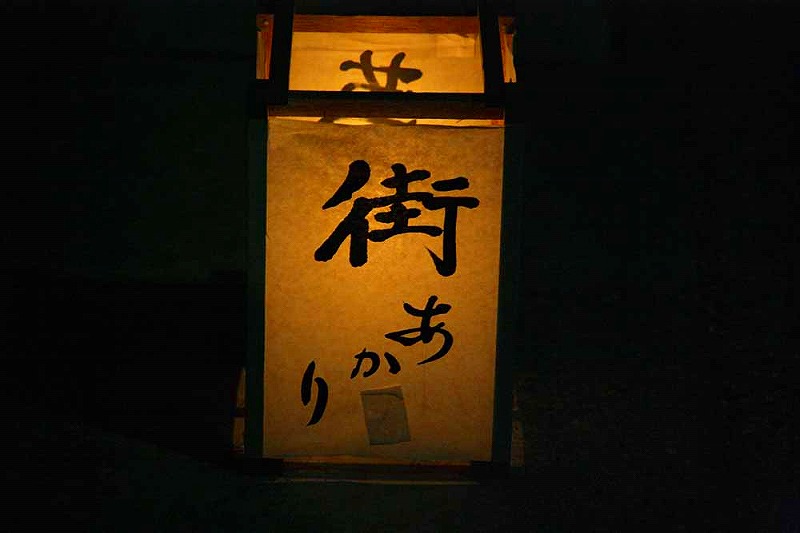 街
あかり